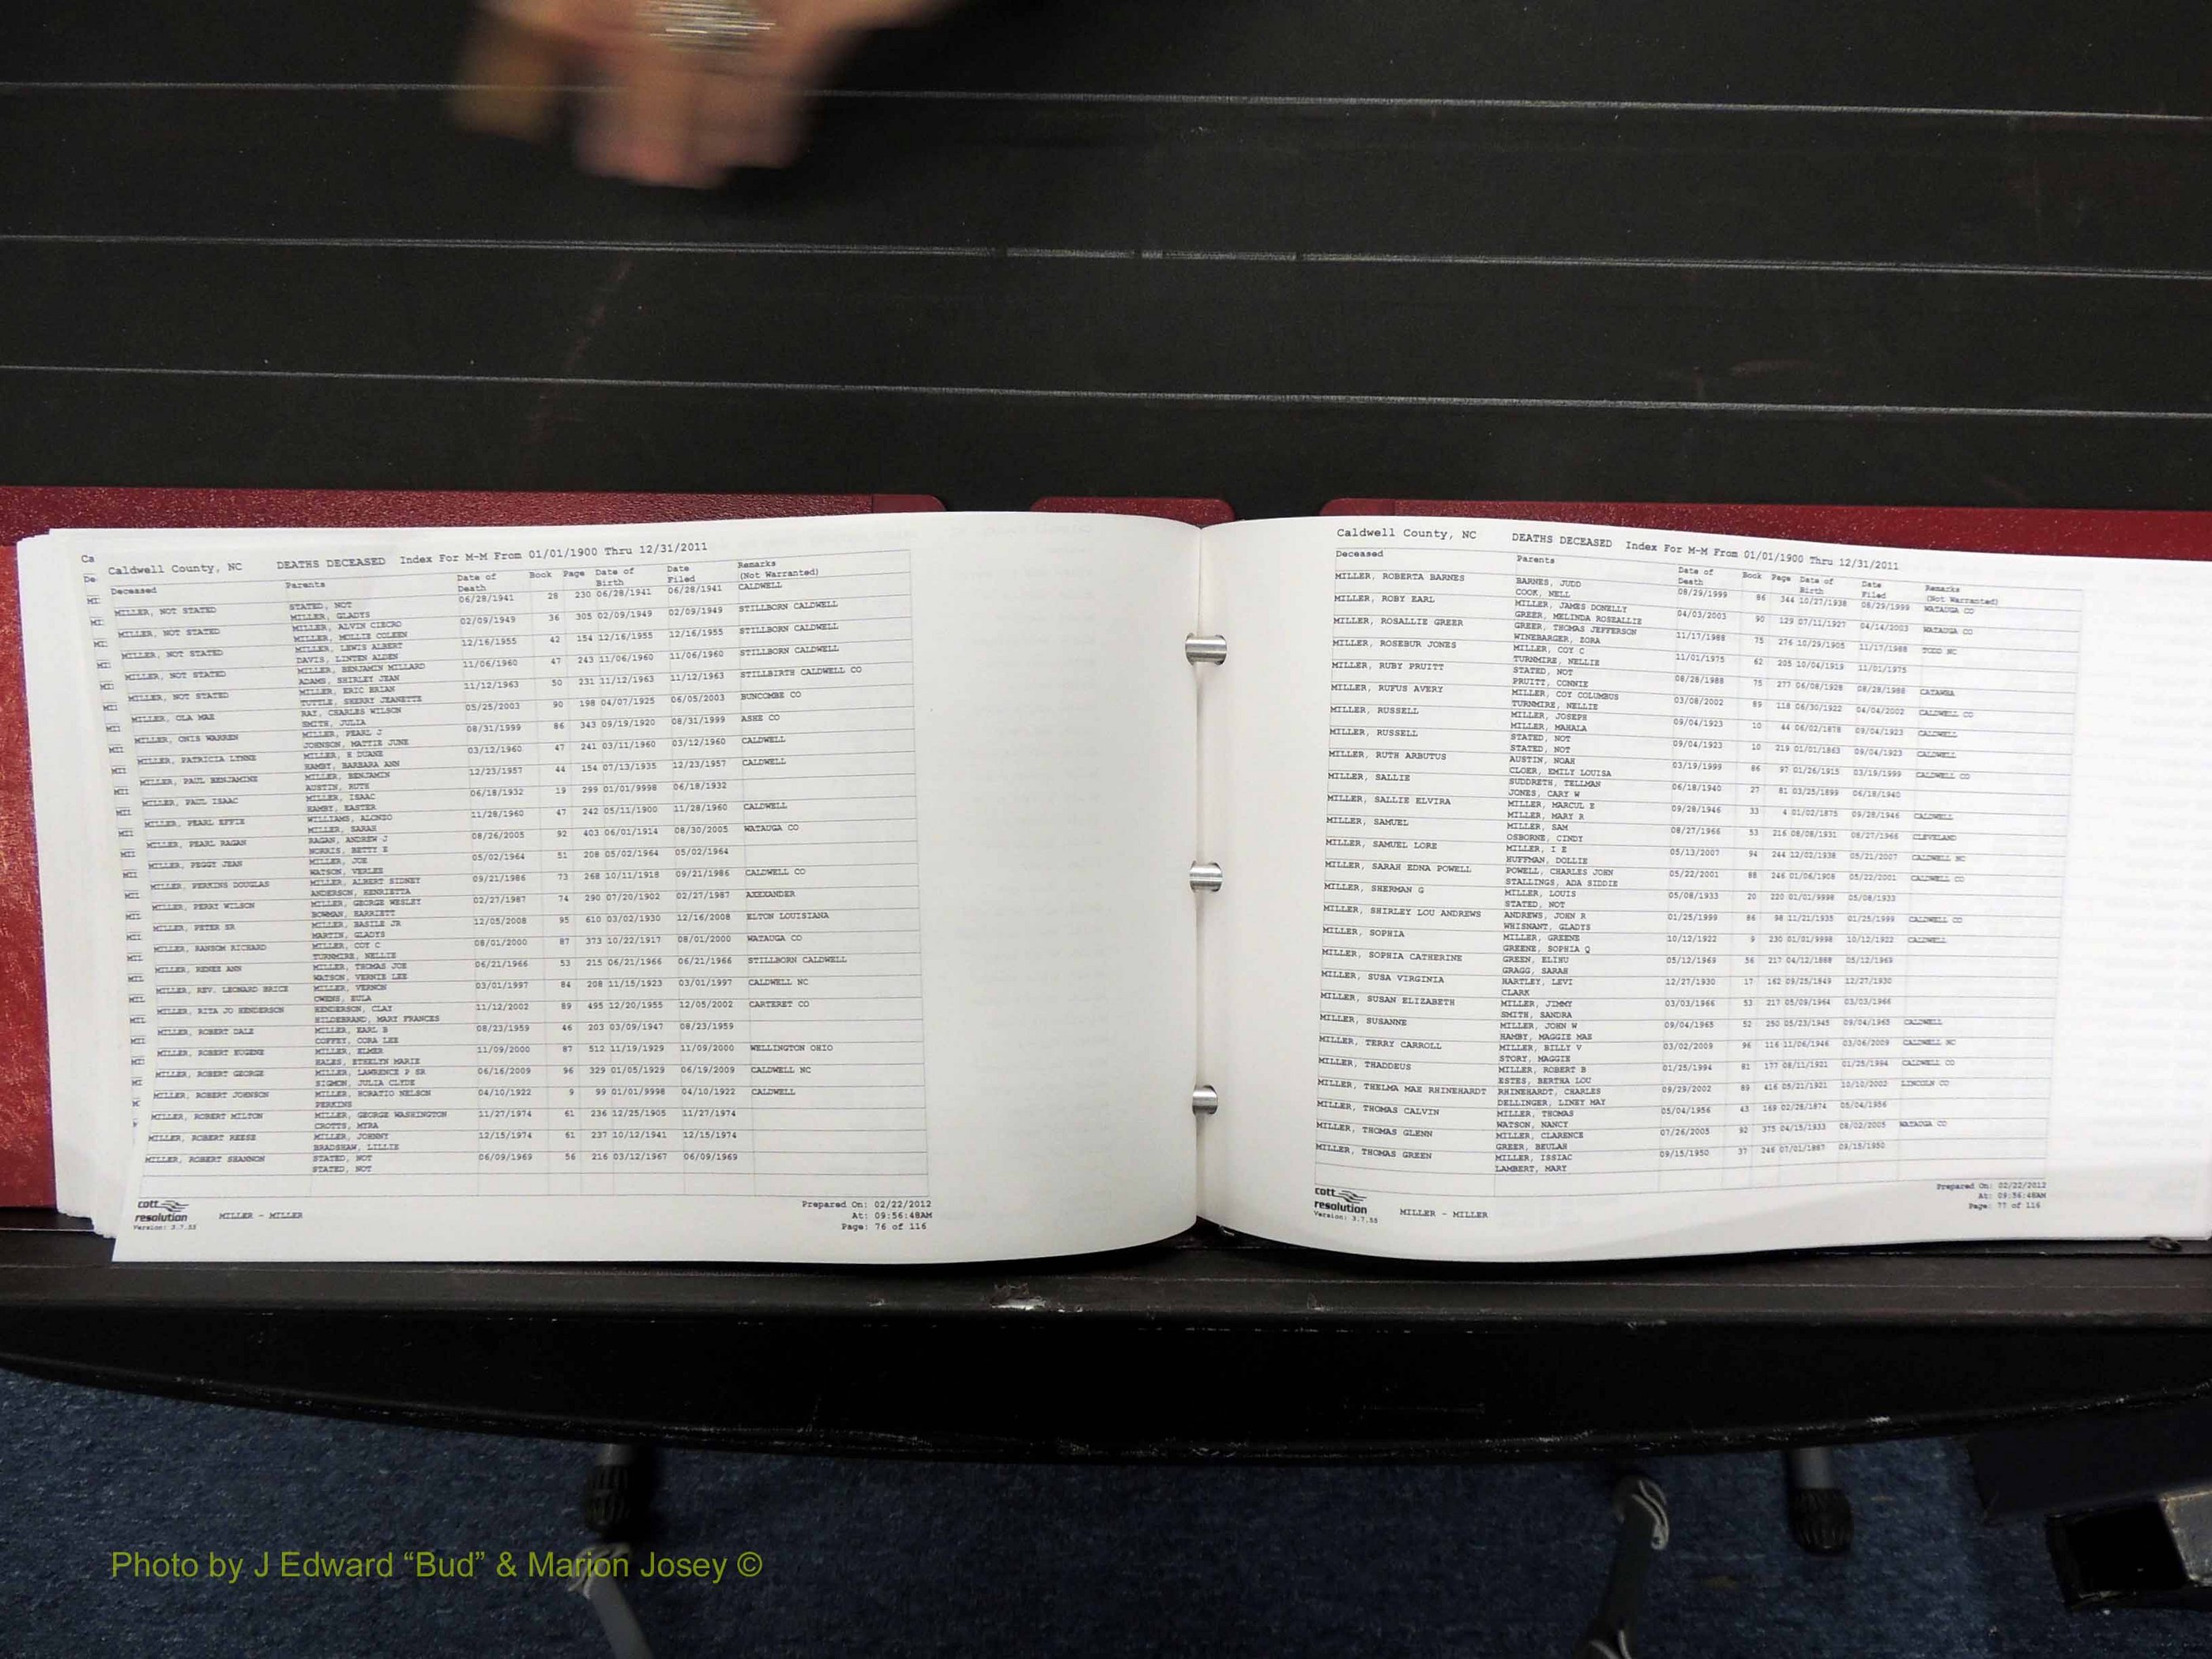 Ca
De
Caldwell County, NC DEATHS DECEASED Index For M-M From 01/01/1900 Thru 12/31/2011
Deceased Parents Date of Death Book Page Date of Birth Date Filed Remarks (Not Warranted)
MILLER, NOT STATED STATED, NOT 06/28/1941 28 230 06/28/1941 06/28/1941 CALDWELL
MILLER, GLADYS
MILLER, NOT STATED MILLER, ALVIN CIECRO 02/09/1949 36 305 02/09/1949 02/09/1949 STILLBORN CALDWELL
MILLER, MOLLIE COLEEN
MILLER, NOT STATED MILLER, LEWIS ALBERT 12/16/1955 42 154 12/16/1955 12/16/1955 STILLBORN CALDWELL
DAVIS, LINTEN ALDEN
MILLER, NOT STATED MILLER, BENJAMIN MILLARD 11/06/1960 47 243 11/06/1960 11/06/1960 STILLBORN CALDWELL
ADAMS, SHIRLEY JEAN
MILLER, NOT STATED MILLER, ERIC BRIAN 11/12/1963 50 231 11/12/1963 11/12/1963 STILLBIRTH CALDWELL CO
TUTTLE, SHERRY JEANETTE
MILLER, OLA MAE RAY, CHARLES WILSON 05/25/2003 90 198 04/07/1925 06/05/2003 BUNCOMBE CO
SMITH, JULIA
MILLER, ONIS WARREN MILLER, PEARL J 08/31/1999 86 343 09/19/1920 08/31/1999 ASHE CO
JOHNSON, MATTIE JUNE
MILLER, PATRICIA LYNNE MILLER, E DUANE 03/12/1960 47 241 03/11/1960 03/12/1960 CALDWELL
HAMBY, BARBARA ANN
MILLER, PAUL BENJAMINE MILLER, BENJAMIN 12/23/1957 44 154 07/13/1935 12/23/1957 CALDWELL
AUSTIN, RUTH
MILLER, PAUL ISAAC MILLER, ISAAC 06/18/1932 19 299 01/01/9998 06/18/1932
HAMBY, EASTER
MILLER, PEARL EFFIE WILLIAMS, ALONZO 11/28/1960 47 242 05/11/1900 11/28/1960 CALDWELL
MILLER, SARAH
MILLER, PEARL RAGAN RAGAN, ANDREW J 08/26/2005 92 403 06/01/1914 08/30/2005 WATAUGA CO
NORRIS, BETTY E
MILLER, PEGGY JEAN MILLER, JOE 05/02/1964 51 208 05/02/1964 05/02/1964
WATSON, VERLEE
MILLER, PERKINS DOUGLAS MILLER, ALBERT SIDNEY 09/21/1986 73 268 10/11/1918 09/21/1986 CALDWELL CO
ANDERSON, HENRIETTA
MILLER, PERRY WILSON MILLER, GEORGE WESLEY 02/27/1987 74 290 07/20/1902 02/27/1987 AXEXANDER
BOWMAN, HARRIETT
MILLER, PETER SR MILLER, BASILE JR 12/05/2008 95 610 03/02/1930 12/16/2008 ELTON LOUISIANA
MARTIN, GLADYS
MILLER, RANSOM RICHARD MILLER, COY C 08/01/2000 87 373 10/22/1917 08/01/2000 WATAUGA CO
TURNMIRE, NELLIE
MILLER, RENEE ANN MILLER, THOMAS JOE 06/21/1966 53 215 06/21/1966 06/21/1966 STILLBORN CALDWELL
WATSON, VERNIE LEE
MILLER, REV. LEONARD BRICE MILLER, VERNON 03/01/1997 84 208 11/15/1923 03/01/1997 CALDWELL NC
OWENS, EULA
MILLER, RITA JO HENDERSON HENDERSON, CLAY 11/12/2002 89 495 12/20/1955 12/05/2002 CARTERET CO
HILDEBRAND, MARY FRANCES
MILLER, ROBERT DALE MILLER, EARL B 08/23/1959 46 203 03/09/1947 08/23/1959
COFFEY, CORA LEE
MILLER, ROBERT EUGENE MILLER, ELMER 11/09/2000 87 512 11/19/1929 11/09/2000 WELLINGTON OHIO
HALES, ETHELYN MARIE
MILLER, ROBERT GEORGE MILLER, LAWRENCE P SR 06/16/2009 96 329 01/05/1929 06/19/2009 CALDWELL NC
SIGMON, JULIA CLYDE
MILLER, ROBERT JOHNSON MILLER, HORATIO NELSON 04/10/1922 9 99 01/01/9998 04/10/1922 CALDWELL
PERKINS
MILLER, ROBERT MILTON MILLER, GEORGE WASHINGTON 11/27/1974 61 236 12/25/1905 11/27/1974
CROTTS, MYRA
MILLER, ROBERT REESE MILLER, JOHNNY 12/15/1974 61 237 10/12/1941 12/15/1974
BRADSHAW, LILLIE
MILLER, ROBERT SHANNON STATED, NOT 06/09/1969 56 216 03/12/1967 06/09/1969
STATED, NOT
cott resolution
Version: 3.7.55
MILLER - MILLER
Prepared On: 02/22/2012
At: 09:56:48AM
Page: 76 of 116
Caldwell County, NC DEATHS DECEASED Index For M-M From 01/01/1900 Thru 12/31/2011
Deceased Parents Date of Death Book Page Date of Birth Date Filed Remarks (Not Warranted)
MILLER, ROBERTA BARNES BARNES, JUDD 08/29/1999 86 344 10/27/1938 08/29/1999 WATAUGA CO
COOK, NELL
MILLER, ROBY EARL MILLER, JAMES DONELLY 04/03/2003 90 129 07/11/1927 04/14/2003 WATAUGA CO
GREER, MELINDA ROSEALLIE
MILLER, ROSALLIE GREER GREER, THOMAS JEFFERSON 11/17/1988 75 276 10/29/1905 11/17/1988 TODD NC
WINEBARGER, ZORA
MILLER, ROSEBUR JONES MILLER, COY C 11/01/1975 62 205 10/04/1919 11/01/1975
TURNMIRE, NELLIE
MILLER, RUBY PRUITT STATED, NOT 08/28/1988 75 277 06/08/1928 08/28/1988 CATAWBA
PRUITT, CONNIE
MILLER, RUFUS AVERY MILLER, COY COLUMBUS 03/08/2002 89 118 06/30/1922 04/04/2002 CALDWELL CO
TURNMIRE, NELLIE
MILLER, RUSSELL MILLER, JOSEPH 09/04/1923 10 44 06/02/1878 09/04/1923 CALDWELL
MILLER, MAHALA
MILLER, RUSSELL STATED, NOT 09/04/1923 10 219 01/01/1863 09/04/1923 CALDWELL
STATED, NOT
MILLER, RUTH ARBUTUS AUSTIN, NOAH 03/19/1999 86 97 01/26/1915 03/19/1999 CALDWELL CO
CLOER, EMILY LOUISA
MILLER, SALLIE SUDDRETH, TELLMAN 06/18/1940 27 81 03/25/1899 06/18/1940
JONES, CARY W
MILLER, SALLIE ELVIRA MILLER, MARCUL E 09/28/1946 33 4 01/02/1875 09/28/1946 CALDWELL
MILLER, MARY R
MILLER, SAMUEL MILLER, SAM 08/27/1966 53 216 08/08/1931 08/27/1966 CLEVELAND
OSBORNE, CINDY
MILLER, SAMUEL LORE MILLER, I E 05/13/2007 94 244 12/02/1938 05/21/2007 CALDWELL NC
HUFFMAN, DOLLIE
MILLER, SARAH EDNA POWELL POWELL, CHARLES JOHN 05/22/2001 88 246 01/06/1908 05/22/2001 CALDWELL CO
STALLINGS, ADA SIDDIE
MILLER, SHERMAN G MILLER, LOUIS 05/08/1933 20 220 01/01/9998 05/08/1933
STATED, NOT
MILLER, SHIRLEY LOU ANDREWS ANDREWS, JOHN R 01/25/1999 86 98 11/21/1935 01/25/1999 CALDWELL CO
WHISNANT, GLADYS
MILLER, SOPHIA MILLER, GREENE 10/12/1922 9 230 01/01/9998 10/12/1922 CALDWELL
GREENE, SOPHIA Q
MILLER, SOPHIA CATHERINE GREEN, ELIHU 05/12/1969 56 217 04/12/1888 05/12/1969
GRAGG, SARAH
MILLER, SUSA VIRGINIA HARTLEY, LEVI 12/27/1930 17 162 09/25/1849 12/27/1930
CLARK
MILLER, SUSAN ELIZABETH MILLER, JIMMY 03/03/1966 53 217 05/09/1964 03/03/1966
SMITH, SANDRA
MILLER, SUSANNE MILLER, JOHN W 09/04/1965 52 250 05/23/1945 09/04/1965 CALDWELL
HAMBY, MAGGIE MAE
MILLER, TERRY CARROLL MILLER, BILLY V 03/02/2009 96 116 11/06/1946 03/06/2009 CALDWELL NC
STORY, MAGGIE
MILLER, THADDEUS MILLER, ROBERT B 01/25/1994 81 177 08/11/1921 01/25/1994 CALDWELL CO
ESTES, BERTHA LOU
MILLER, THELMA MAE RHINEHARDT RHINEHARDT, CHARLES 09/29/2002 89 416 05/21/1921 10/10/2002 LINCOLN CO
DELLINGER, LINEY MAY
MILLER, THOMAS CALVIN MILLER, THOMAS 05/04/1956 43 169 02/28/1874 05/04/1956
WATSON, NANCY
MILLER, THOMAS GLENN MILLER, CLARENCE 07/26/2005 92 375 04/15/1933 08/02/2005 WATAUGA CO
GREER, BEULAH
MILLER, THOMAS GREEN MILLER, ISSIAC 09/15/1950 37 246 07/01/1887 09/15/1950
LAMBERT, MARY
cott resolution
Version: 3.7.55
MILLER - MILLER
Prepared On: 02/22/2012
At: 09:56:48AM
Page: 77 of 116
Photo by J Edward “Bud” & Marion Josey ©